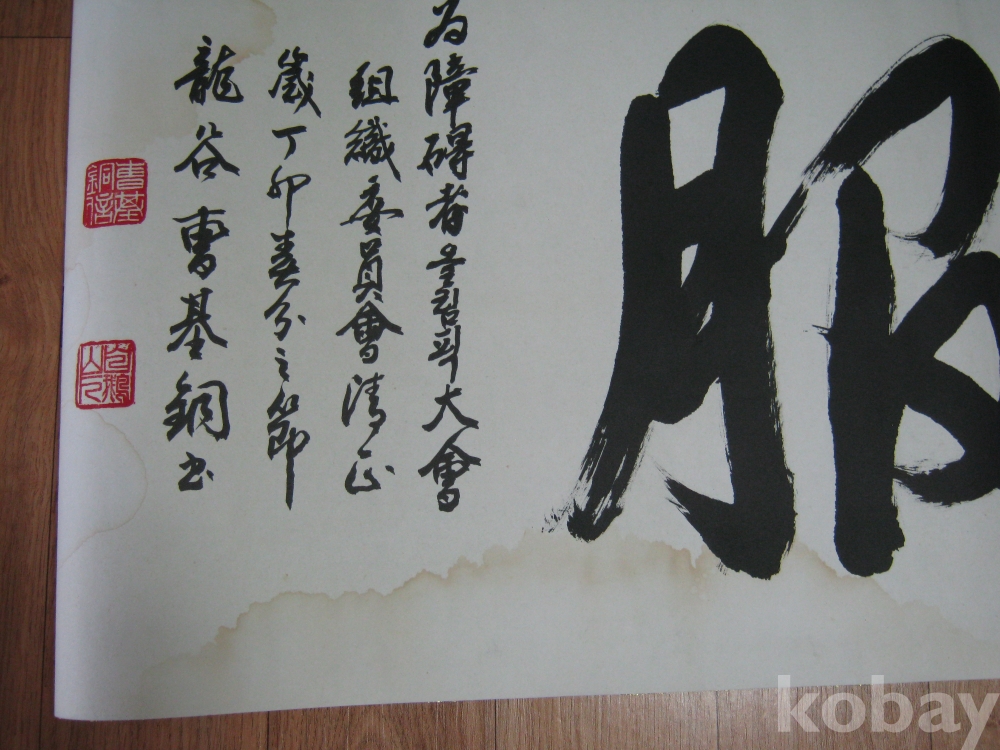 服
為障碍者올림픽大會
組織委員會清正
歲丁卯春分之節
龍谷 曺基銅書
曺基銅信
kobay